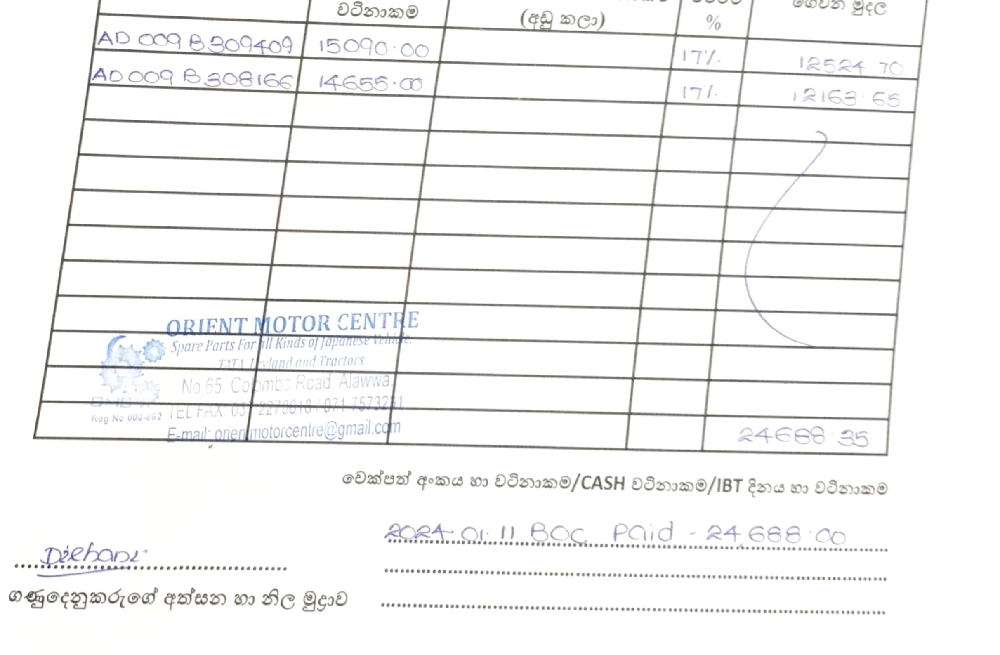 වටිනාකම (අඩු කලා) % ගෙවන මුදල
AD 009 B 309409 15090.00 17% 12524.70
AD 009 B 308166 14655.00 17% 12163.65
ORIENT MOTOR CENTRE
Spare Parts For All Kinds of Japanese Vehicle,
TATA Leyland and Tractors
No 65, Colombo Road, Alawwa
TEL FAX: 037 2278618 / 071 7573231
E-mail: orienmotorcentre@gmail.com
24688.35
චෙක්පත් අංකය හා වටිනාකම/CASH වටිනාකම/IBT දිනය හා වටිනාකම
2024.01.11 BOC Paid - 24,688.00
ගණුදෙනුකරුගේ අත්සන හා නිල මුද්‍රාව